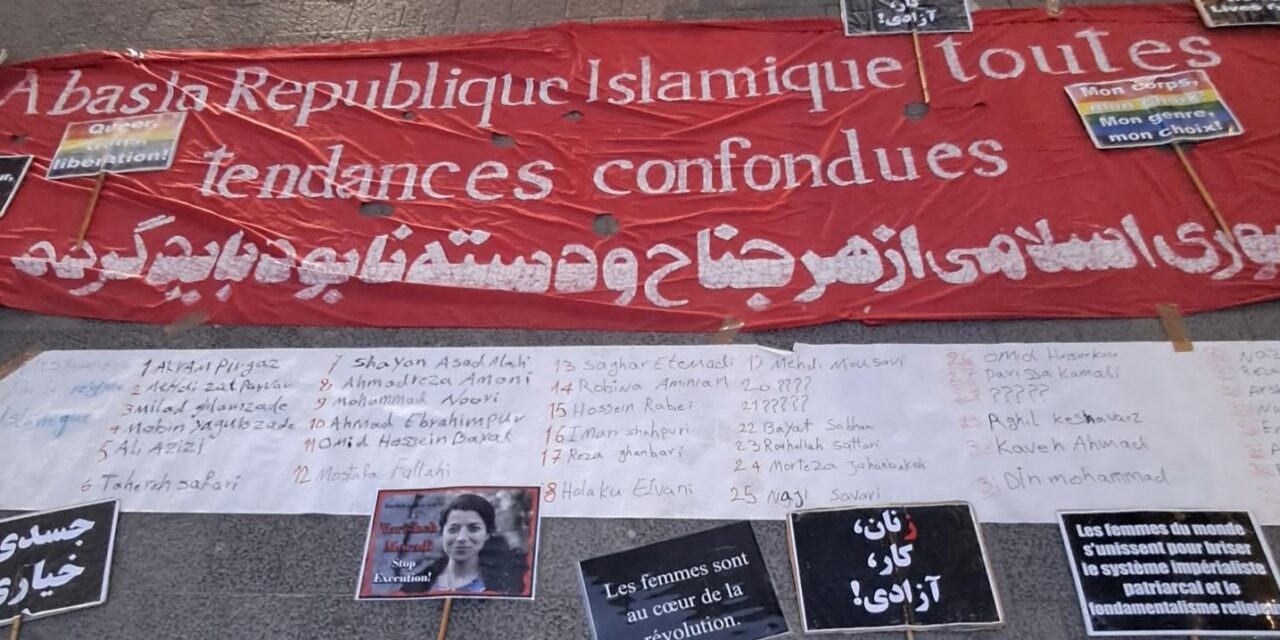 آزادی!
A bas la Republique Islamique toutes
tendances confondues
اسلامی از هر جناح و دسته نابود باید گردد
Queer,
trans,
liberation!
Mon corps,
mon choix!
Mon genre,
mon choix!
Islamique
2 Mehdi zat Parvar
5 Ali Azizi
6 Tahereh safari
7 Shayan Asad Alahi
8 Ahmadreza Amani
9 Mohammad Noori
10 Ahmad Ebrahimpur
11 Omid Hossein Bayat
12 Mostafa Fallahi
13 Saghar Etemadi
14 Robina Aminian
15 Hossein Rabiei
16 Iman shahpuri
17 Reza ghanbari
8 Holaku Elvani
Mehdi Mousavi
20 ????
21 ?????
22 Bayat Sobhan
23 Rouhollah Sattari
24 Morteza Jahanbakhsh
25 Naji Savari
Omid
Parissa Kamali
?????
Aghil Keshavarz
Kaveh Ahmad
Din mohammad
جسدی
خیاری
Varisheh
Moradi
Stop
Execution!
Les femmes sont
au cœur de la
révolution.
زنان،
کار،
آزادی!
Les femmes du monde
s'unissent pour briser
le système impérialiste
patriarcal et le
fondamentalisme